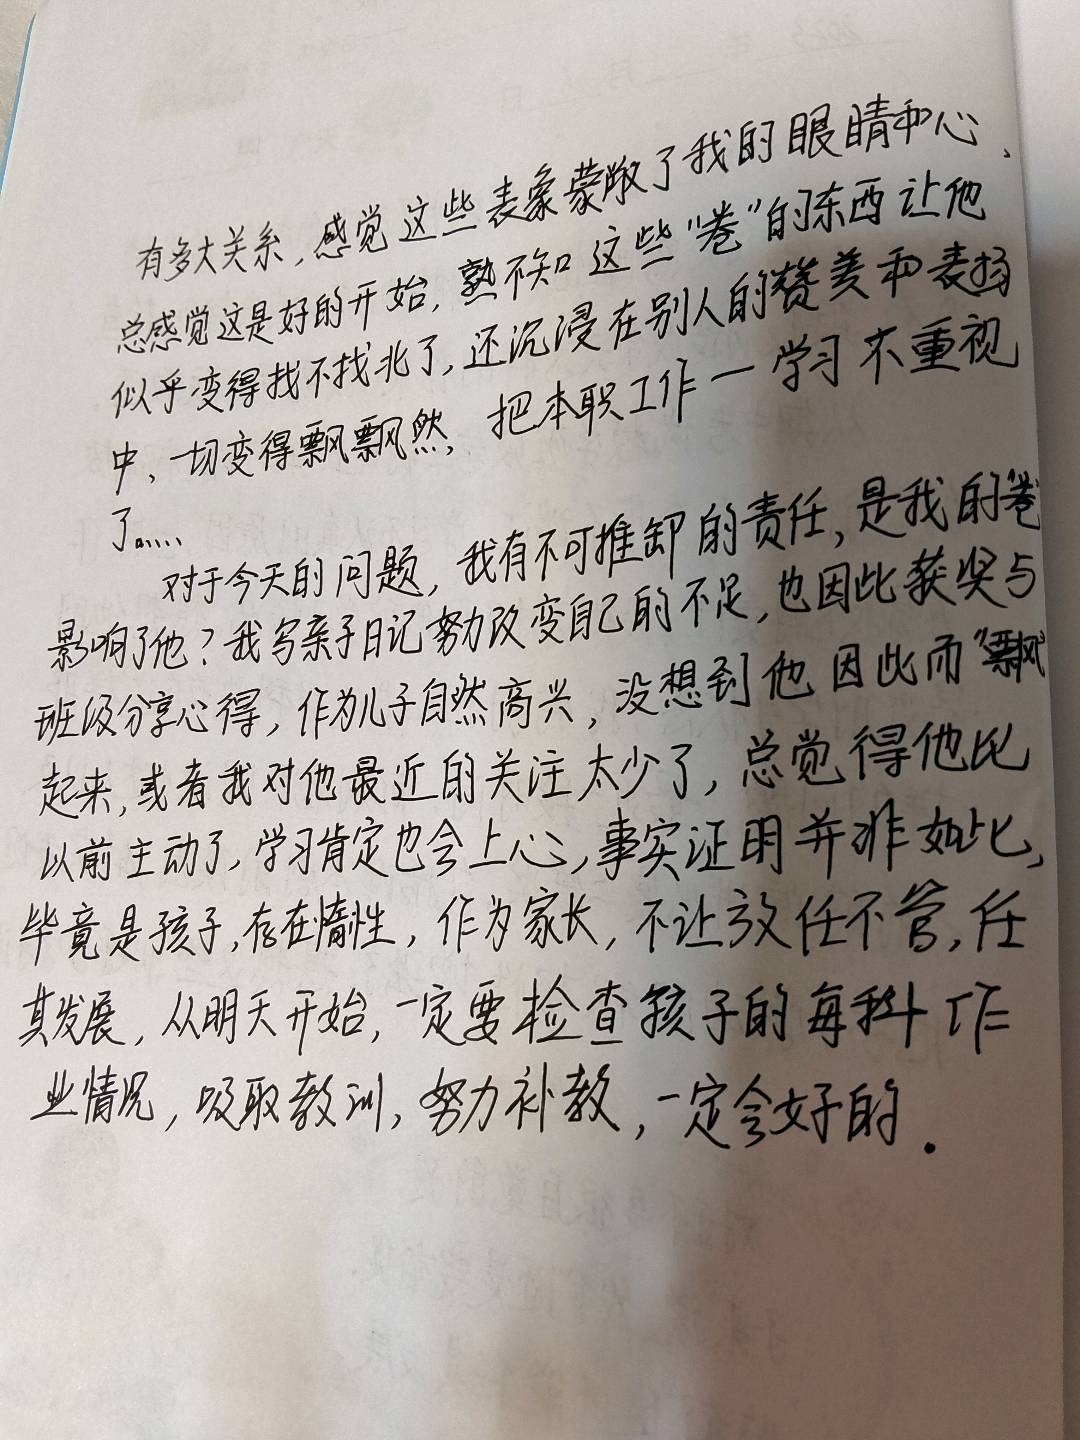 有多大关系，感觉这些表象蒙敝了我的眼睛和心、
总感觉这是好的开始，熟不知这些“卷”的东西让他
似乎变得找不找北了，还沉浸在别人的赞美和表扬
中，一切变得飘飘然，把本职工作一学习不重视
了……
对于今天的问题，我有不可推卸的责任，是我的“卷”
影响了他？我写亲子日记努力改变自己的不足，也因此获奖与
班级分享心得，作为儿子自然高兴，没想到他因此而“飘”
起来，或者我对他最近的关注太少了，总觉得他比
以前主动了，学习肯定也会上心，事实证明并非如此，
毕竟是孩子，存在惰性，作为家长，不让放任不管，任
其发展，从明天开始，一定要检查孩子的每科作
业情况，吸取教训，努力补救，一定会好的．